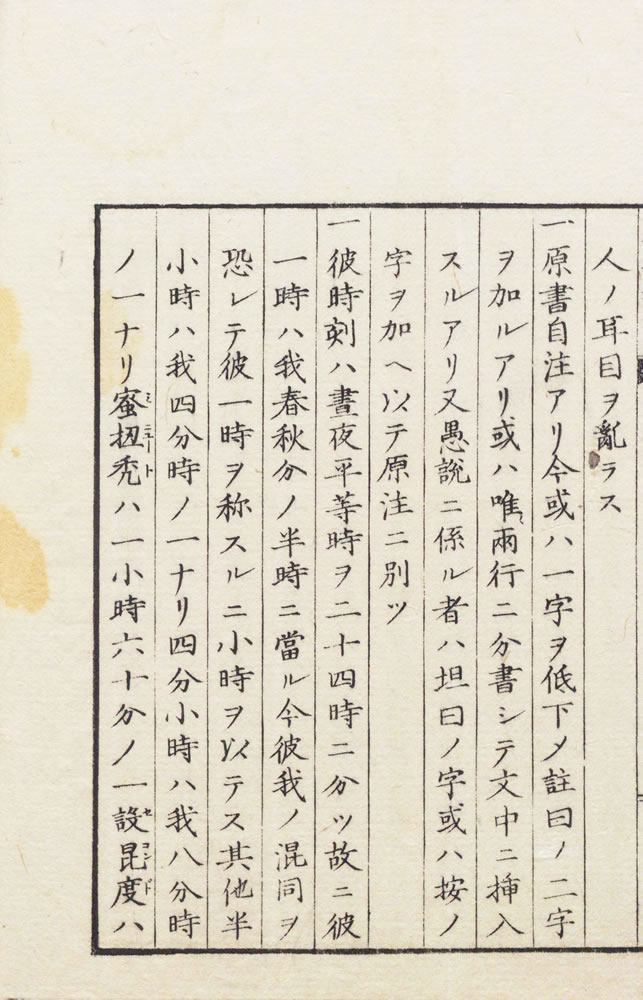 人ノ耳目ヲ亂ラス
一原書自注アリ今或ハ一字ヲ低下メ註曰ノ二字
ヲ加ルアリ或ハ唯兩行ニ分書シテ文中ニ挿入
スルアリ又愚説ニ係ル者ハ坦曰ノ字或ハ按ノ
字ヲ加ヘ以テ原注ニ別ツ
一彼時刻ハ晝夜平等時ヲ二十四時ニ分ツ故ニ彼
一時ハ我春秋分ノ半時ニ當ル今彼我ノ混同ヲ
恐レテ彼一時ヲ称スルニ小時ヲ以テス其他半
小時ハ我四分時ノ一ナリ四分小時ハ我八分時
ノ一ナリ蜜扭禿ミニュートハ一小時六十分ノ一設昆度セコンドハ